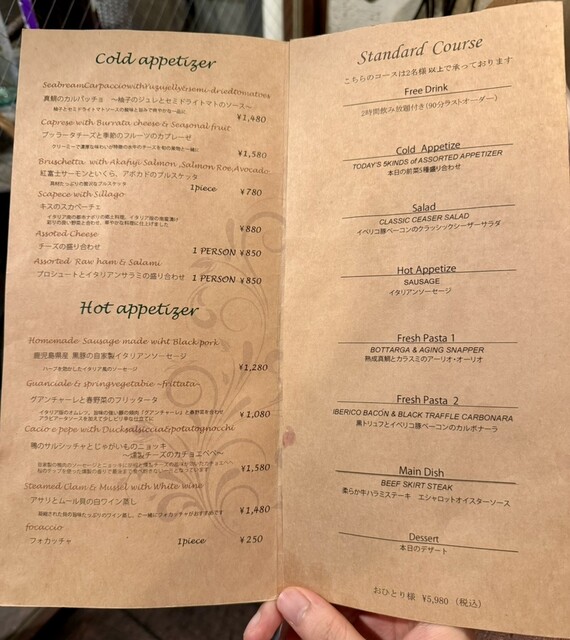 Cold appetizer
SeabreamCarpacciowithYuzujelly&semi-driedtomatoes
真鯛のカルパッチョ ～柚子のジュレとセミドライトマトのソース～
柚子とセミドライトマトソースの酸味と旨みで爽やかな一品に
¥1,480
Caprese with Burrata cheese & Seasonal fruit
ブッラータチーズと季節のフルーツのカプレーゼ
¥1,580
Bruschetta with Akafuji Salmon ,Salmon Roe,Avocado
紅富士サーモンといくら、アボカドのブルスケッタ
具材たっぷりの贅沢なブルスケッタ
1piece ¥780
Scapece with Sillago
キスのスカペーチェ
¥880
Assoted Cheese
チーズの盛り合わせ 1 PERSON ¥850
Assorted Raw ham & Salami
プロシュートとイタリアンサラミの盛り合わせ 1 PERSON ¥850
Hot appetizer
Homemade Sausage made wiht Black pork
鹿児島県産 黒豚の自家製イタリアンソーセージ
ハーブを効かしたイタリア風のソーセージ
¥1,280
Guanciale & springvegetable ~frittata~
グアンチャーレと春野菜のフリッタータ
¥1,080
Cacio e pepe with Ducksalsiccia&potatognocchi
鴨のサルシッチャとじゃがいものニョッキ
～燻製チーズのカチョエペペ～
¥1,580
Steamed Clam & Mussel with White wine
アサリとムール貝の白ワイン蒸し
¥1,480
focaccio
フォカッチャ 1piece ¥250
Standard Course
こちらのコースは2名様以上で承っております
Free Drink
2時間飲み放題付き(90分ラストオーダー)
Cold Appetize
TODAY'S 5KINDS of ASSORTED APPETIZER
本日の前菜5種盛り合わせ
Salad
CLASSIC CEASER SALAD
イベリコ豚ベーコンのクラッシックシーザーサラダ
Hot Appetize
SAUSAGE
イタリアンソーセージ
Fresh Pasta 1
BOTTARGA & AGING SNAPPER
熟成真鯛とカラスミのアーリオ・オーリオ
Fresh Pasta 2
IBERICO BACON & BLACK TRAFFLE CARBONARA
黒トリュフとイベリコ豚ベーコンのカルボナーラ
Main Dish
BEEF SKIRT STEAK
柔らか牛ハラミステーキ エシャロットオイスターソース
Dessert
本日のデザート
おひとり様 ¥5,980 (税込)